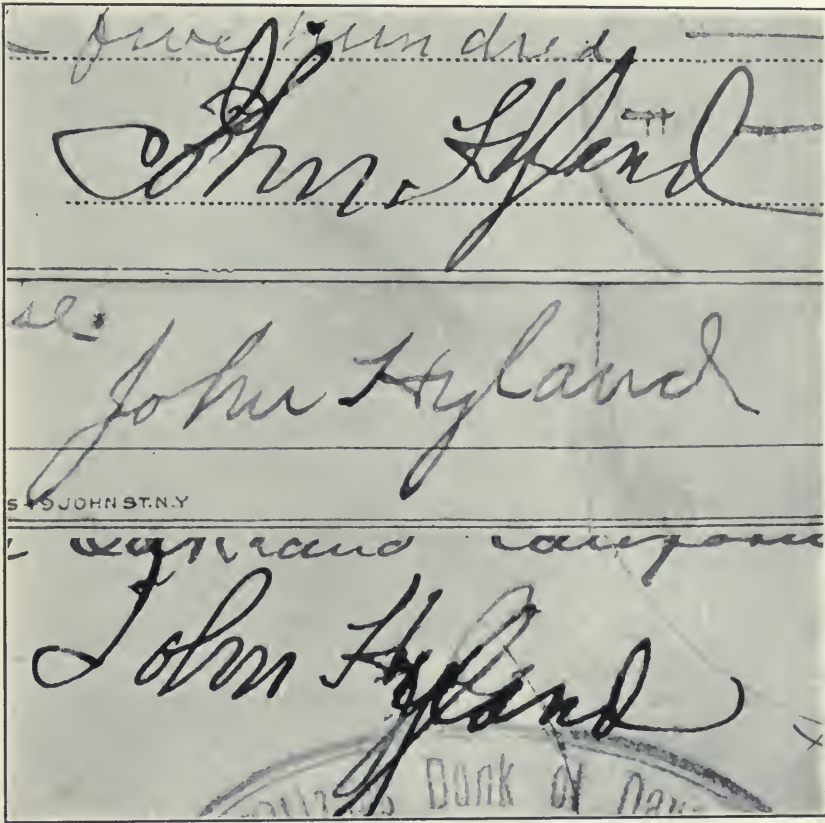 five hundred
John Hyland
John Hyland
S 49 JOHN ST. N.Y
John Hyland
Bank of